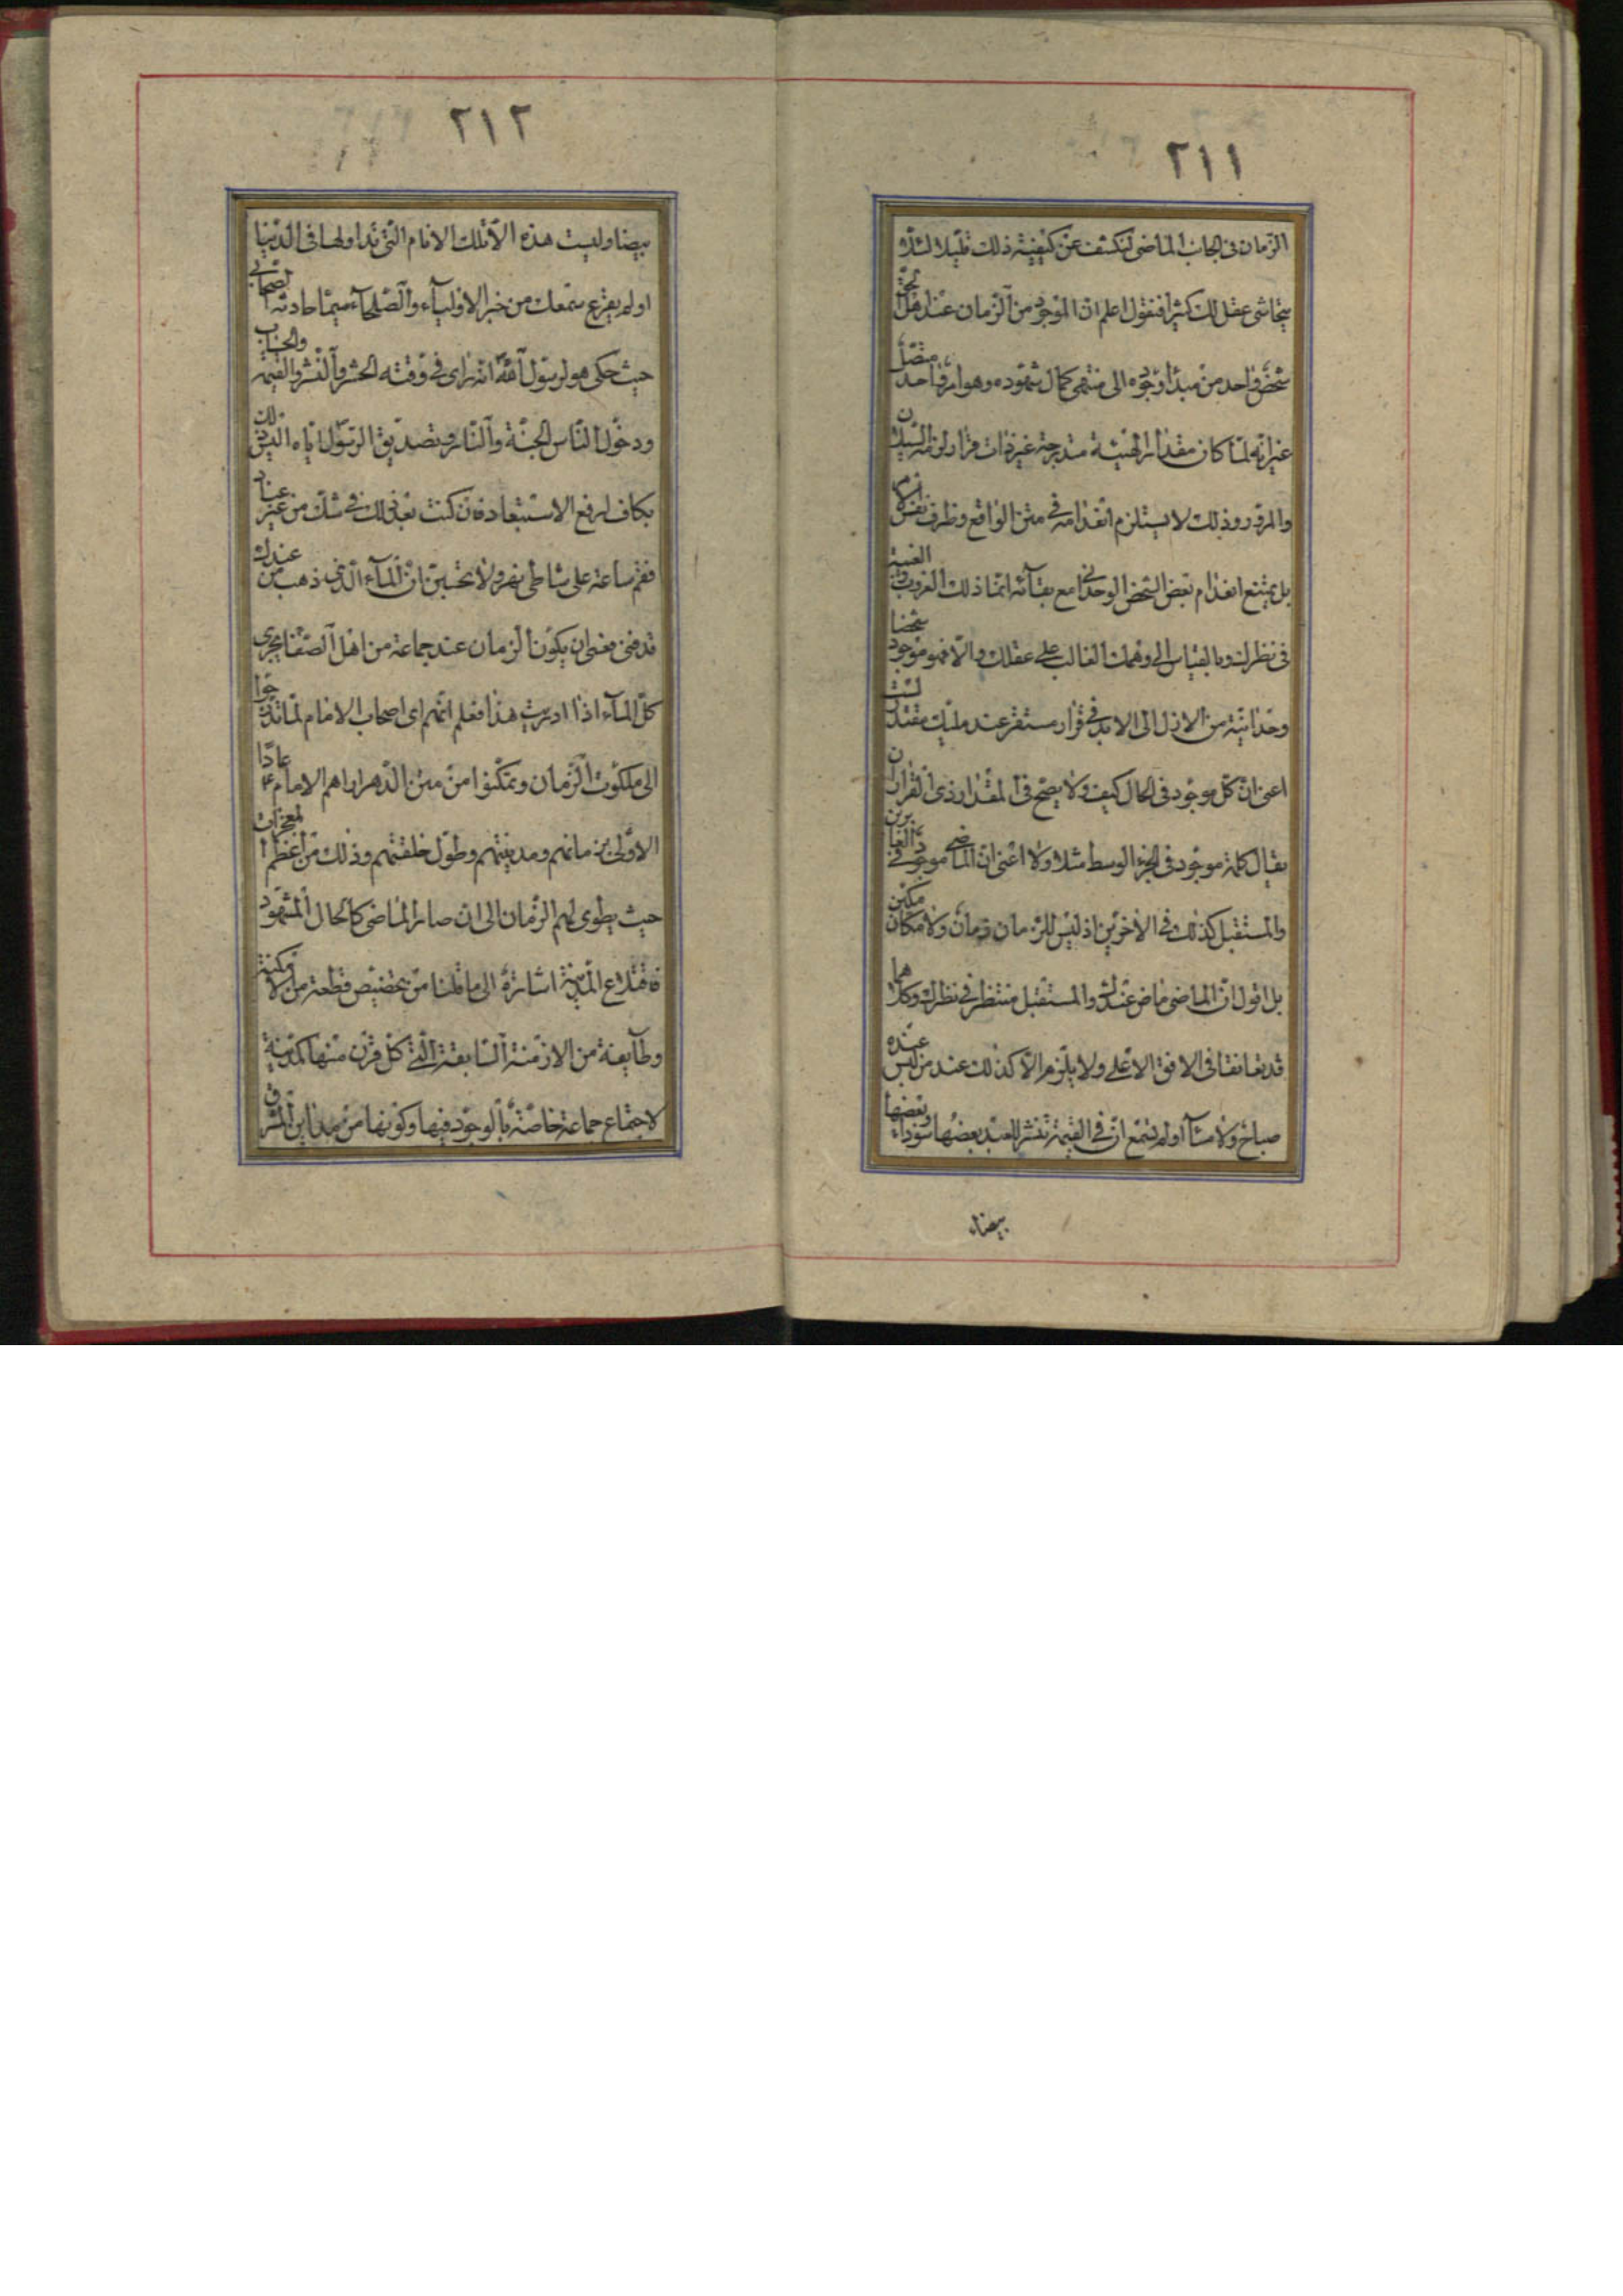 ٢١١
الزمان فى الجانب الماضى لنكشف عن كيفية ذلك قليلا لئلا
يتحاشى عقلك كثيرا فنقول اعلم ان الموجود من الزمان عند اهل الحق
شخص واحد من مبدأ وجوده الى منتهى كمال شهوده وهو امر واحد متصل
غير انه لما كان مقدارا لهيئة متدرجة غير ذات قرار لزمه السيلان
والمرور وذلك لا يستلزم انعدامه فى متن الواقع وظرف نفس الامر
بل يمتنع انعدام بعض الشخص الوحدانى مع بقائه انما ذلك الغروب والغيبة
فى نظرك وبالقياس الى وهمك الغالب على عقلك والا فهو موجود شخصا
وحدانية من الازل الى الابد فى قرار مستقر عند مليك مقتدر لست
اعنى ان كل موجود فى الحال كيف ولا يصح فى المقدار ذى القرار ان
يقال كله موجود فى الجزء الوسط مثلا ولا اعنى ان الماضى موجود فى الغابرين
والمستقبل كذلك فى الاخرين اذ ليس للزمان زمان ولا مكان
بل اقول ان الماضى ماض عندك والمستقبل منتظر فى نظرك وكلاهما
قد تعانقا فى الافق الاعلى ولا يلزم الا كذلك عند من ليس عنده
صباح ولا مساء اولم تسمع ان فى القيمة تنشر للعبد بعضها سوداء وبعضها
بيضاء
٢١٢
بيضا وليست هذه الا تلك الايام التى تداولها فى الدنيا
اولم يقرع سمعك من خبر الاولياء والصلحاء سيما حارثة الصحابى
حيث حكى هو لرسول الله انه راى فى وقته الحشر والنشر والقيمة والحساب
ودخول الناس الجنة والنار وتصديق الرسول اياه اليس ذلك
بكاف لرفع الاستبعاد فان كنت بعد ذلك فى شك من غير عناد
فقم ساعة على شاطى نهر ولا تحسبن ان الماء الذى ذهب من عندك
قد فنى فعسى ان يكون الزمان عند جماعة من اهل الصفا مجرى
كل الماء اذا دريت هذا فعلم انهم اى اصحاب الامام لما تدرجوا
الى ملكوت الزمان وتمكنوا من متن الدهر اراهم الامام ع عادا
الاولى بزمانهم ومدينتهم وطول خلقتهم وذلك من اعظم المعجزات
حيث يطوى لهم الزمان الى ان صار الماضى كالحال المشهود
فاقتلاع المدينة اشارة الى ما قلنا من تخصيص قطعة من الامكنة
وطايفة من الازمنة السابقة التى كل قرن منها كمدينة
لاجتماع جماعة خاصة بالوجود فيها وكونها من مداين المشرق